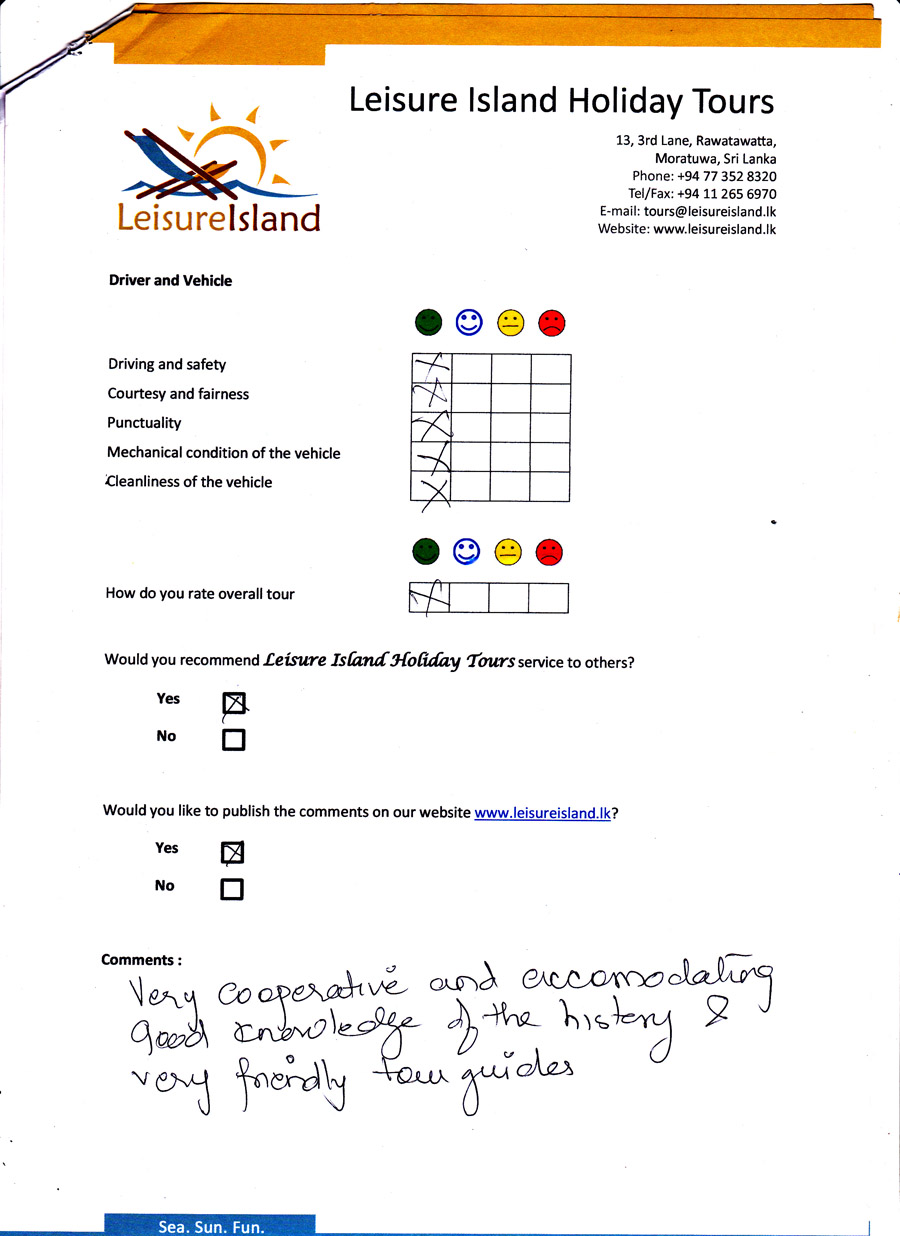 Leisure Island Holiday Tours
LeisureIsland
13, 3rd Lane, Rawatawatta,
Moratuwa, Sri Lanka
Phone: +94 77 352 8320
Tel/Fax: +94 11 265 6970
E-mail: tours@leisureisland.lk
Website: www.leisureisland.lk
Driver and Vehicle
Driving and safety
Courtesy and fairness
Punctuality
Mechanical condition of the vehicle
Cleanliness of the vehicle
How do you rate overall tour
Would you recommend Leisure Island Holiday Tours service to others?
Yes
No
Would you like to publish the comments on our website www.leisureisland.lk?
Yes
No
Comments :
Very cooperative and accomodating
good knowledge of the history &
very friendly tour guides
Sea. Sun. Fun.